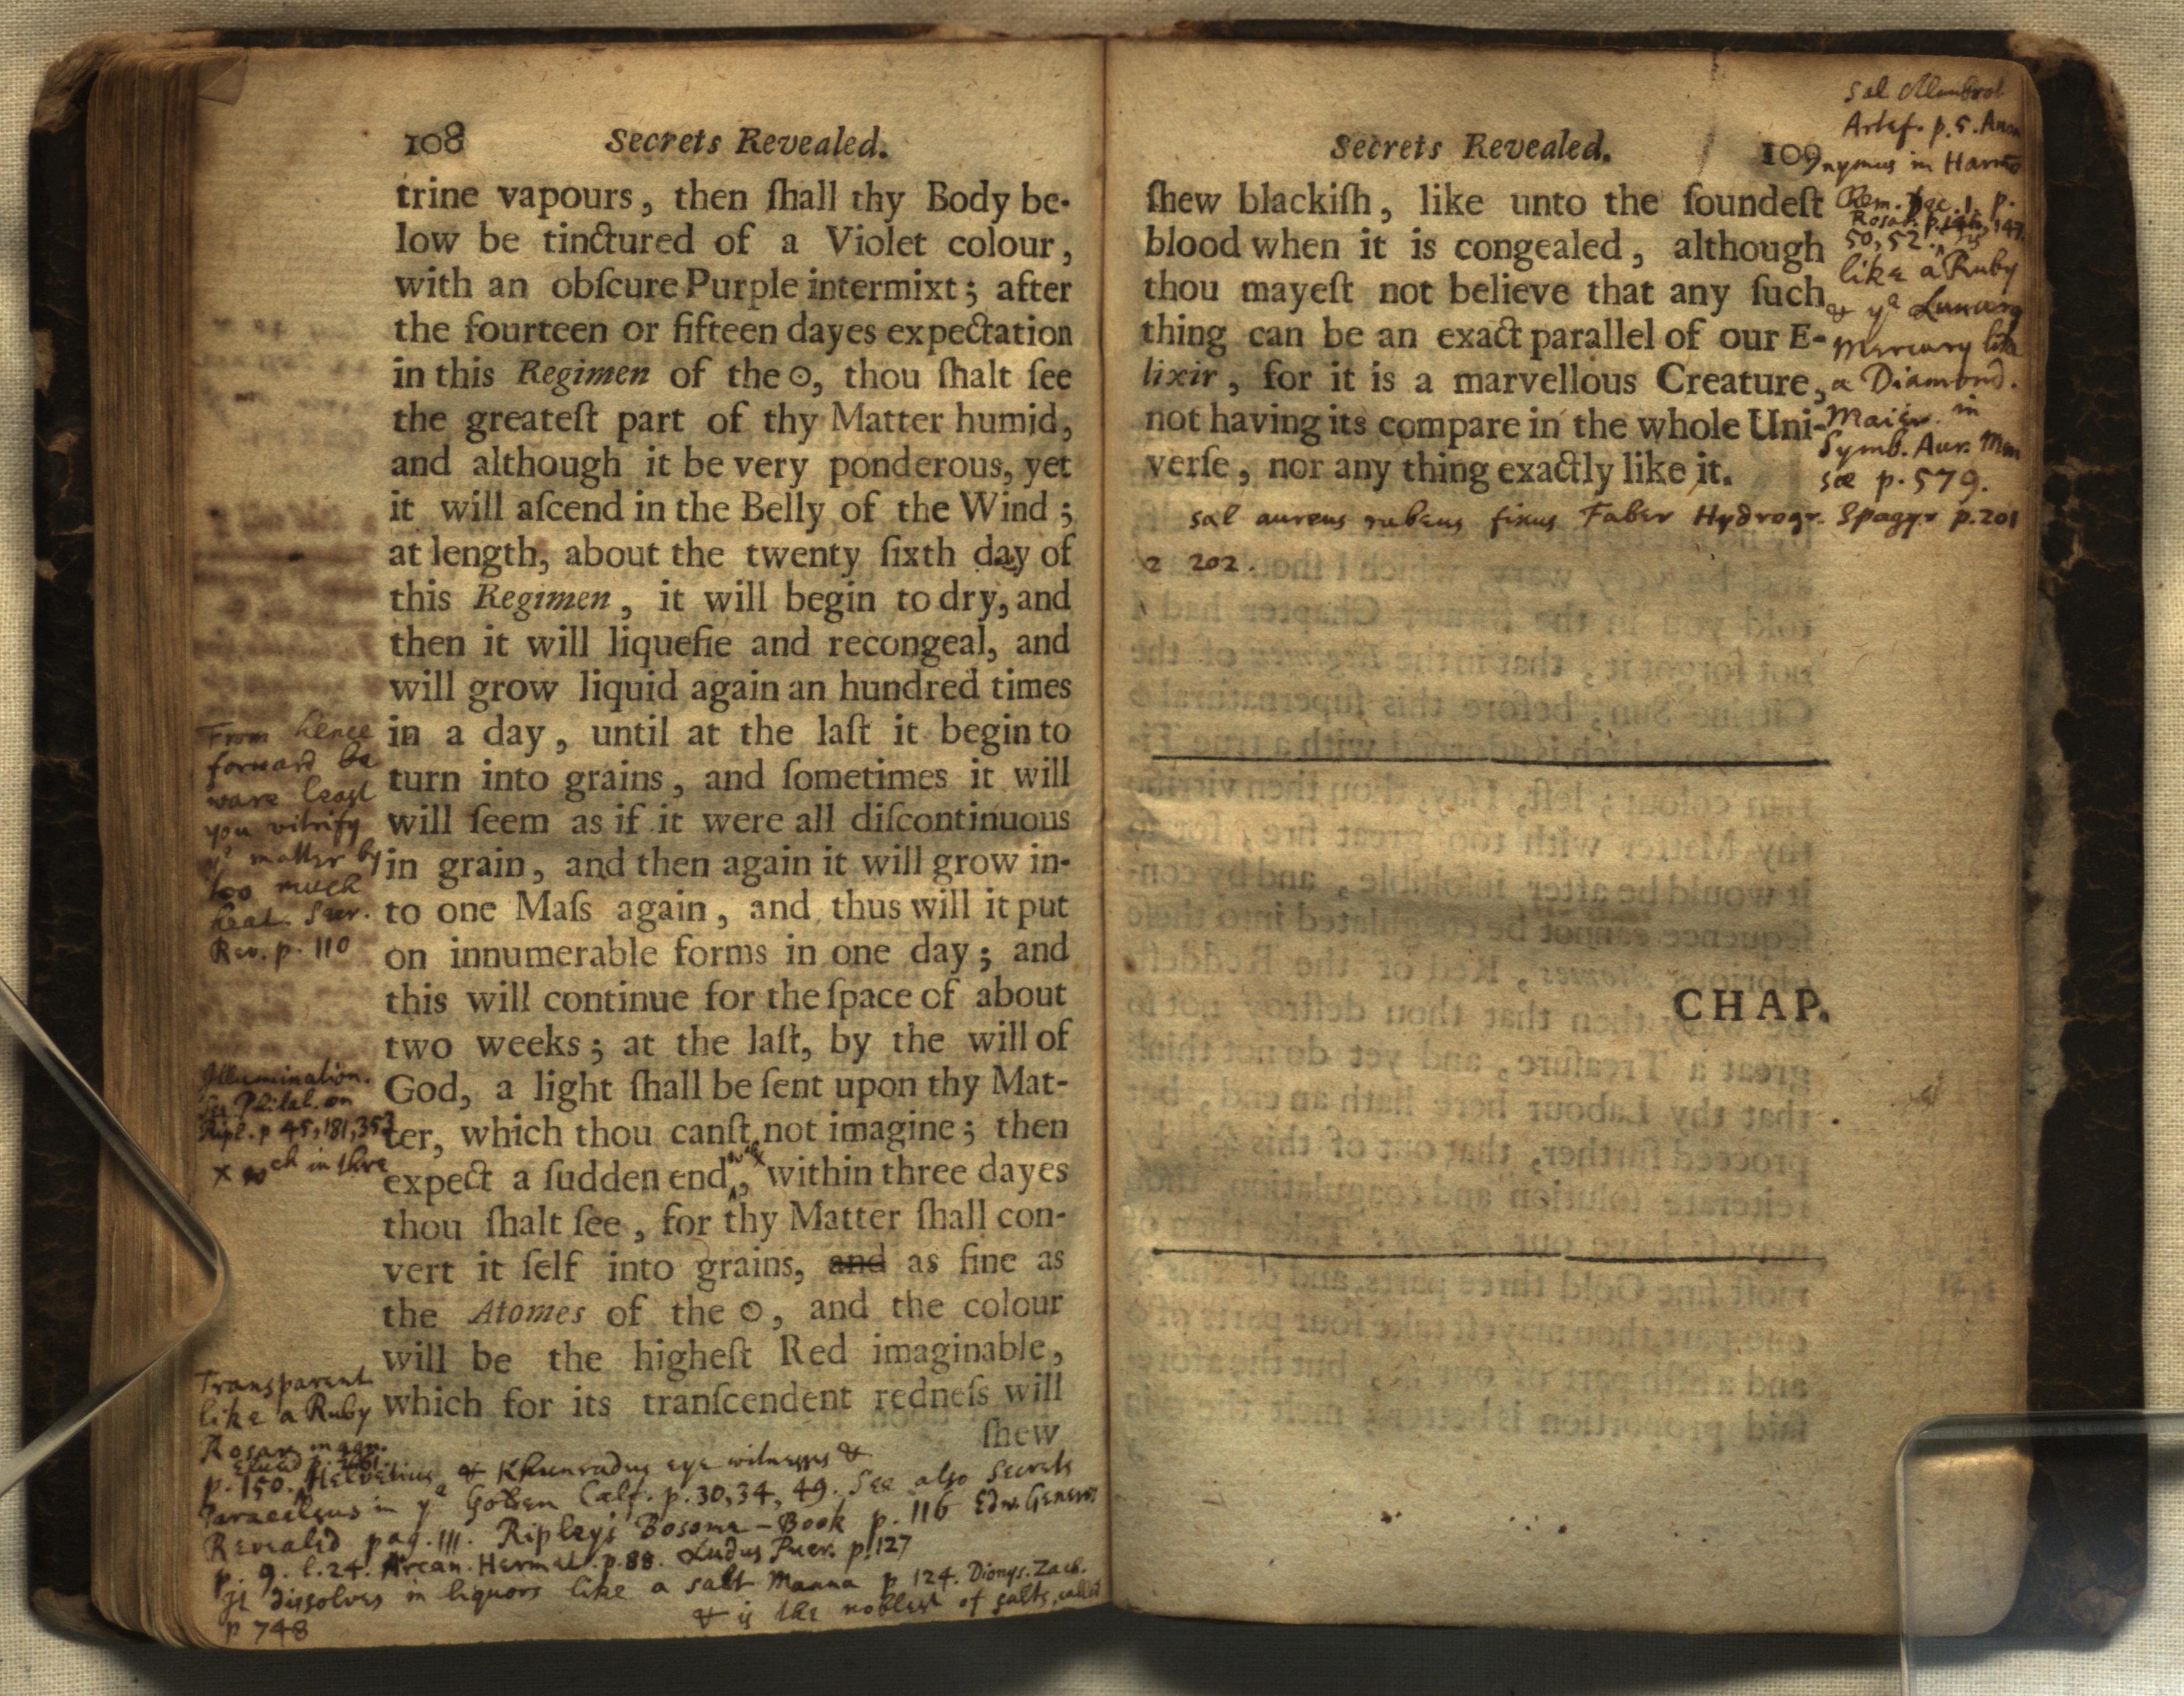 108 Secrets Revealed.
trine vapours, then ſhall thy Body be-
low be tinctured of a Violet colour,
with an obſcure Purple intermixt; after
the fourteen or fifteen dayes expectation
in this Regimen of the ☉, thou ſhalt ſee
the greateſt part of thy Matter humid,
and although it be very ponderous, yet
it will aſcend in the Belly of the Wind;
at length, about the twenty ſixth day of
this Regimen, it will begin to dry, and
then it will liquefie and recongeal, and
will grow liquid again an hundred times
in a day, until at the laſt it begin to
turn into grains, and ſometimes it will
will ſeem as if it were all diſcontinuous
in grain, and then again it will grow in-
to one Maſs again, and thus will it put
on innumerable forms in one day; and
this will continue for the ſpace of about
two weeks; at the laſt, by the will of
God, a light ſhall be ſent upon thy Mat-
ter, which thou canſt not imagine; then
expect a ſudden end, within three dayes
thou ſhalt ſee, for thy Matter ſhall con-
vert it ſelf into grains, and as fine as
the Atomes of the ☉, and the colour
will be the higheſt Red imaginable,
which for its tranſcendent redneſs will
ſhew
From hence
forward be
ware least
you vitrify
yᵉ matter by
too much
heat. Secr.
Rev. p. 110
Illumination.
Philal. on
Ripl. p 45, 181, 353
x wᶜʰ in three
Transparent
like a Ruby
Rosar. magn.
p. 150. Helvetius & Khunradus eye witnesses &
Paracelsus in yᵉ Golden Calf. p. 30, 34, 49. See also Secrets
Revealed pag. 111. Ripley's Bosome-Book p. 116 Edw. Generos
p. 9. l. 24. Arcan. Hermet. p. 88. Ludus Puer. p. 127
It dissolves in liquors like a salt Manna p 124. Dionys. Zach.
p 748 & is the noblest of salts, called
Secrets Revealed. 109
ſhew blackiſh, like unto the ſoundeſt
blood when it is congealed, although
thou mayeſt not believe that any ſuch
thing can be an exact parallel of our E-
lixir, for it is a marvellous Creature,
not having its compare in the whole Uni-
verſe, nor any thing exactly like it.
Sal Alembrot
Artef. p. 5. Ano
nymus in Harmo
p.
Rosar. p. 146, 147.
50, 52. is
like a Ruby
& yᵉ Lunary
Mercury like
a Diamond.
Maier. in
Symb. Aur. Men
sæ p. 579.
sal aureus rubeus fixus Faber Hydrogr. Spagyr p. 201
202.
CHAP.